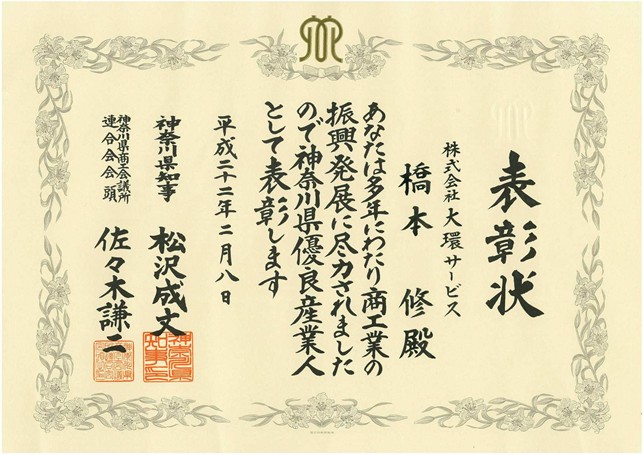 表彰状
株式会社 大環サービス
橋本 修 殿
あなたは多年にわたり商工業の
振興発展に尽力されました
ので神奈川県優良産業人
として表彰します
平成二十二年二月八日
神奈川県知事 松沢成文
神奈川県商工会議所
連合会会頭 佐々木謙二